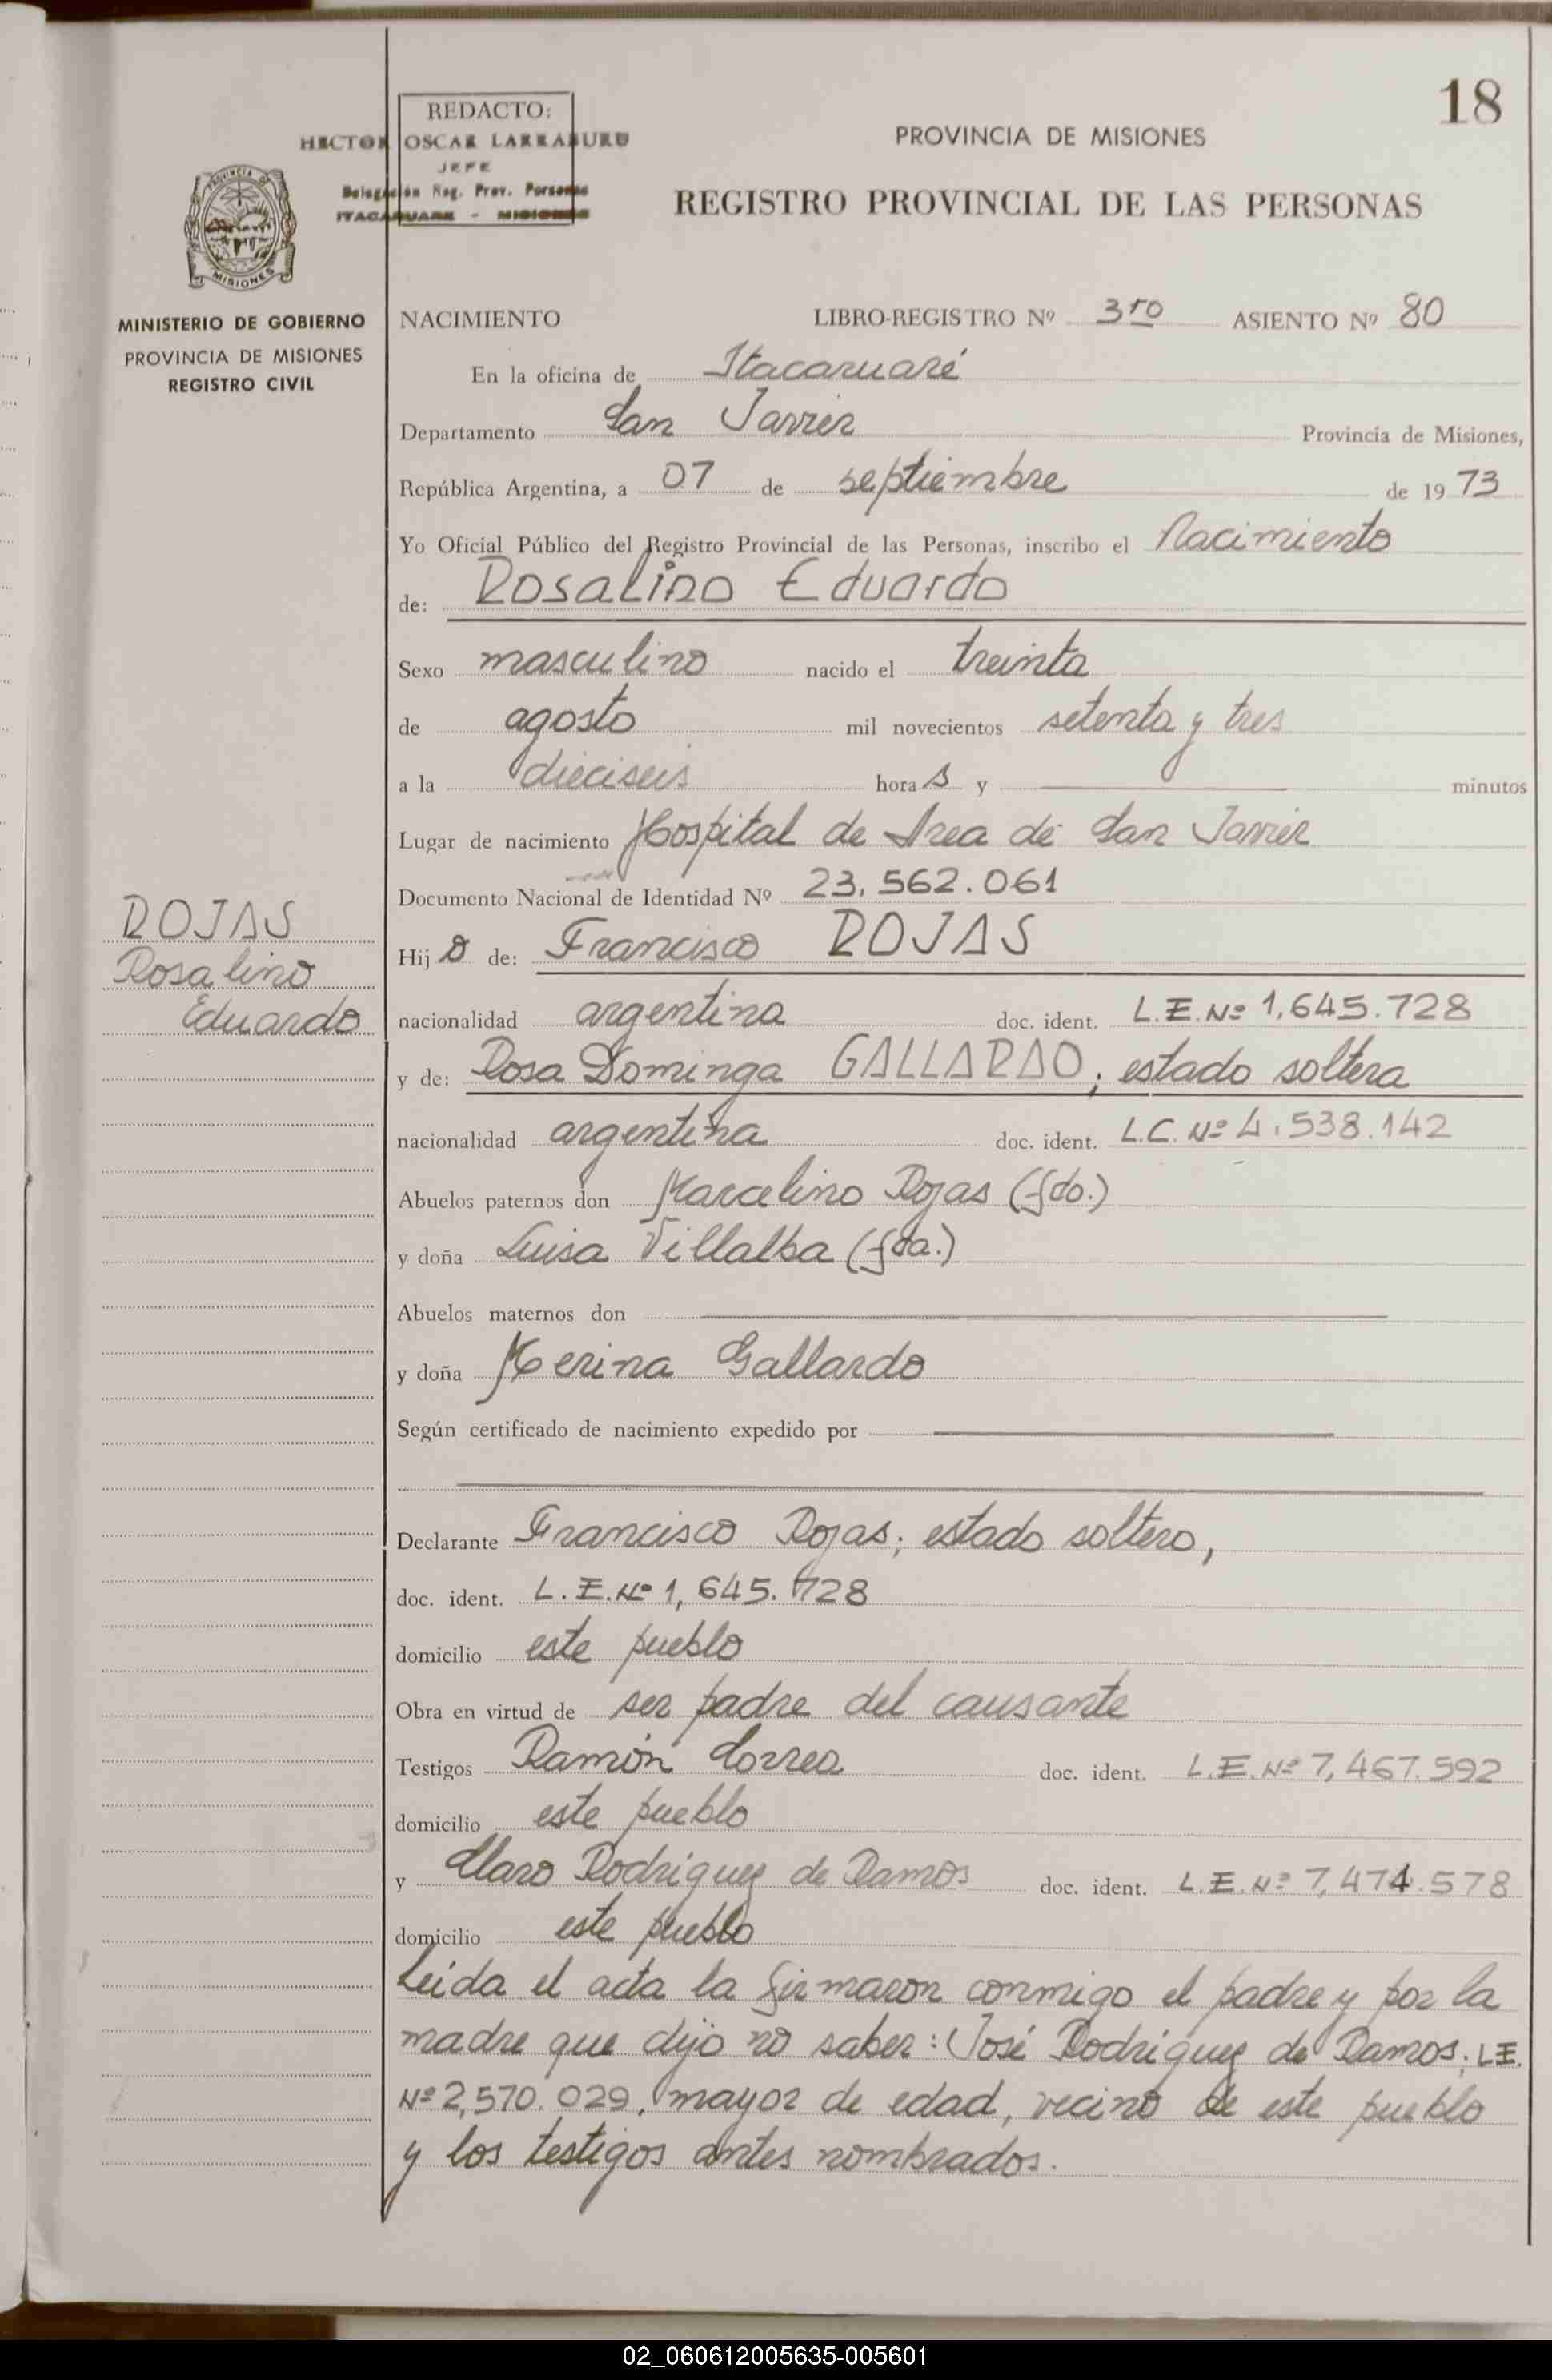 18
REDACTO:
HECTOR OSCAR LARRABURU
JEFE
Delegación Reg. Prov. Personas
ITACARUARE - MISIONES
PROVINCIA DE MISIONES
REGISTRO PROVINCIAL DE LAS PERSONAS
PROVINCIA DE
MISIONES
MINISTERIO DE GOBIERNO
PROVINCIA DE MISIONES
REGISTRO CIVIL
NACIMIENTO LIBRO-REGISTRO Nº 3ro ASIENTO Nº 80
En la oficina de Itacaruaré
Departamento San Javier Provincia de Misiones,
República Argentina, a 07 de septiembre de 19 73
Yo Oficial Público del Registro Provincial de las Personas, inscribo el Nacimiento
de: Rosalino Eduardo
Sexo masculino nacido el treinta
de agosto mil novecientos setenta y tres
a la dieciseis hora s y minutos
Lugar de nacimiento Hospital de Area de San Javier
Documento Nacional de Identidad Nº 23.562.061
ROJAS
Rosalino
Eduardo
Hij o de: Francisco ROJAS
nacionalidad argentina doc. ident. L.E. Nº 1,645.728
y de: Rosa Dominga GALLARDO; estado soltera
nacionalidad argentina doc. ident. L.C. Nº 4.538.142
Abuelos paternos don Marcelino Rojas (fdo.)
y doña Luisa Villalba (fda.)
Abuelos maternos don
y doña Merina Gallardo
Según certificado de nacimiento expedido por
Declarante Francisco Rojas; estado soltero,
doc. ident. L.E. Nº 1,645.728
domicilio este pueblo
Obra en virtud de ser padre del causante
Testigos Ramón Correa doc. ident. L.E. Nº 7,467.592
domicilio este pueblo
y Claro Rodriguez de Ramos doc. ident. L.E. Nº 7,474.578
domicilio este pueblo
Leida el acta la firmaron conmigo el padre y por la
madre que dijo no saber: José Rodriguez de Ramos; L.E.
Nº 2,570.029, mayor de edad, vecino de este pueblo
y los testigos antes nombrados.
02_060612005635-005601